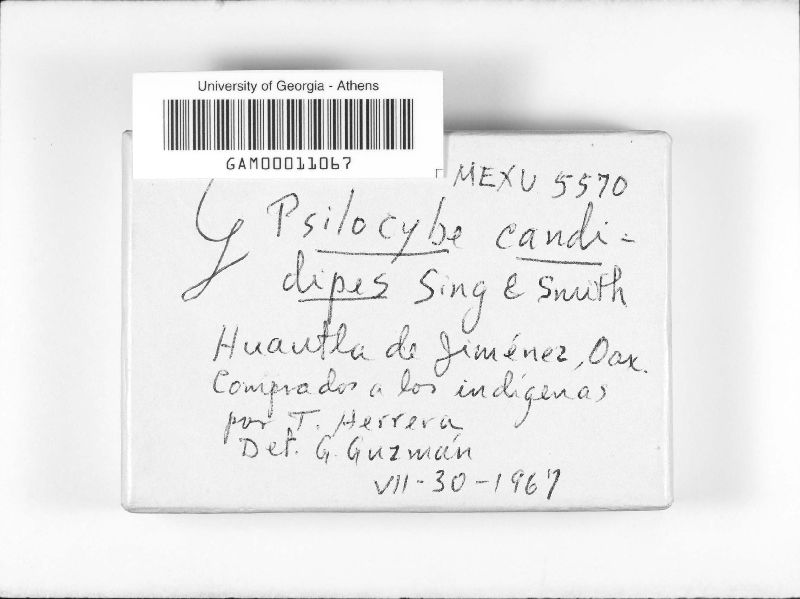 University of Georgia - Athens
GAM00011067
MEXU 5570
Psilocybe candi-
dipes Sing & Smith
Huautla de Jiménez, Oax.
Comprados a los indígenas
por T. Herrera
Det. G. Guzmán
VII-30-1967